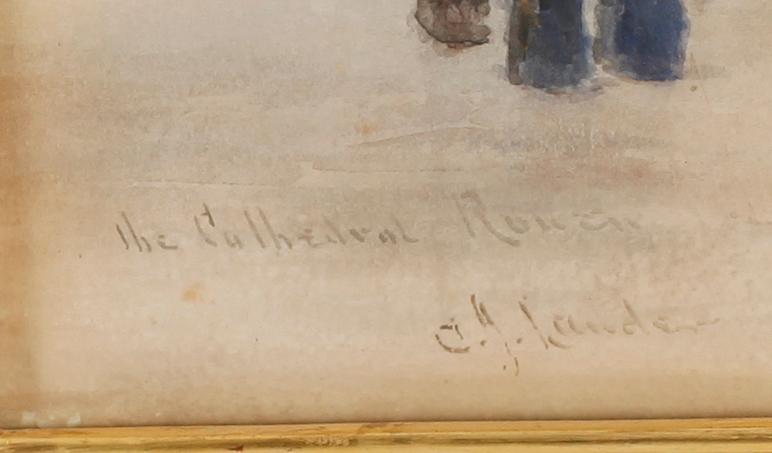 The Cathedral Rouen
C.J. Lauder